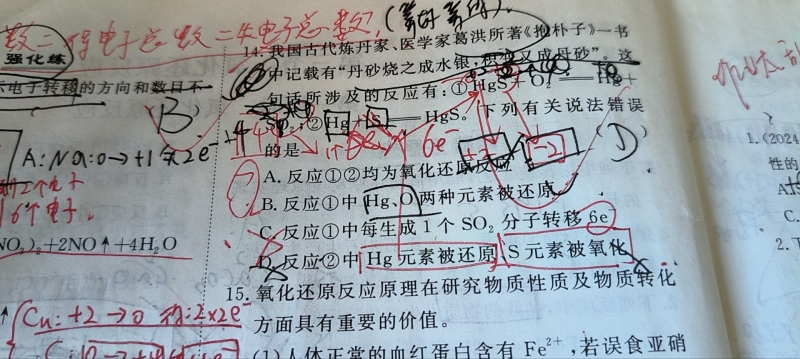 数=得电子总数=失电子总数,(等时等同).
强化练
电子转移的方向和数目不
B
A:Na:0→+1 失2e⁻
6个电子.
NO₃)₂+2NO↑+4H₂O
Cu:+2→0 得:2×2e⁻
14. 我国古代炼丹家、医学家葛洪所著《抱朴子》一书
中记载有“丹砂烧之成水银,积变又成丹砂”。这
句话所涉及的反应有:①HgS+O₂══Hg+
SO₂;②Hg+S══HgS。下列有关说法错误
的是 (D)
6e⁻
+2
-2
A. 反应①②均为氧化还原反应
B. 反应①中 Hg、O 两种元素被还原
C. 反应①中每生成 1 个 SO₂ 分子转移 6e⁻
D. 反应②中 Hg 元素被还原,S 元素被氧化
15. 氧化还原反应原理在研究物质性质及物质转化
方面具有重要的价值。
(1)人体正常的血红蛋白含有 Fe²⁺,若误食亚硝
1. (2024
性的
A.
C.
2.